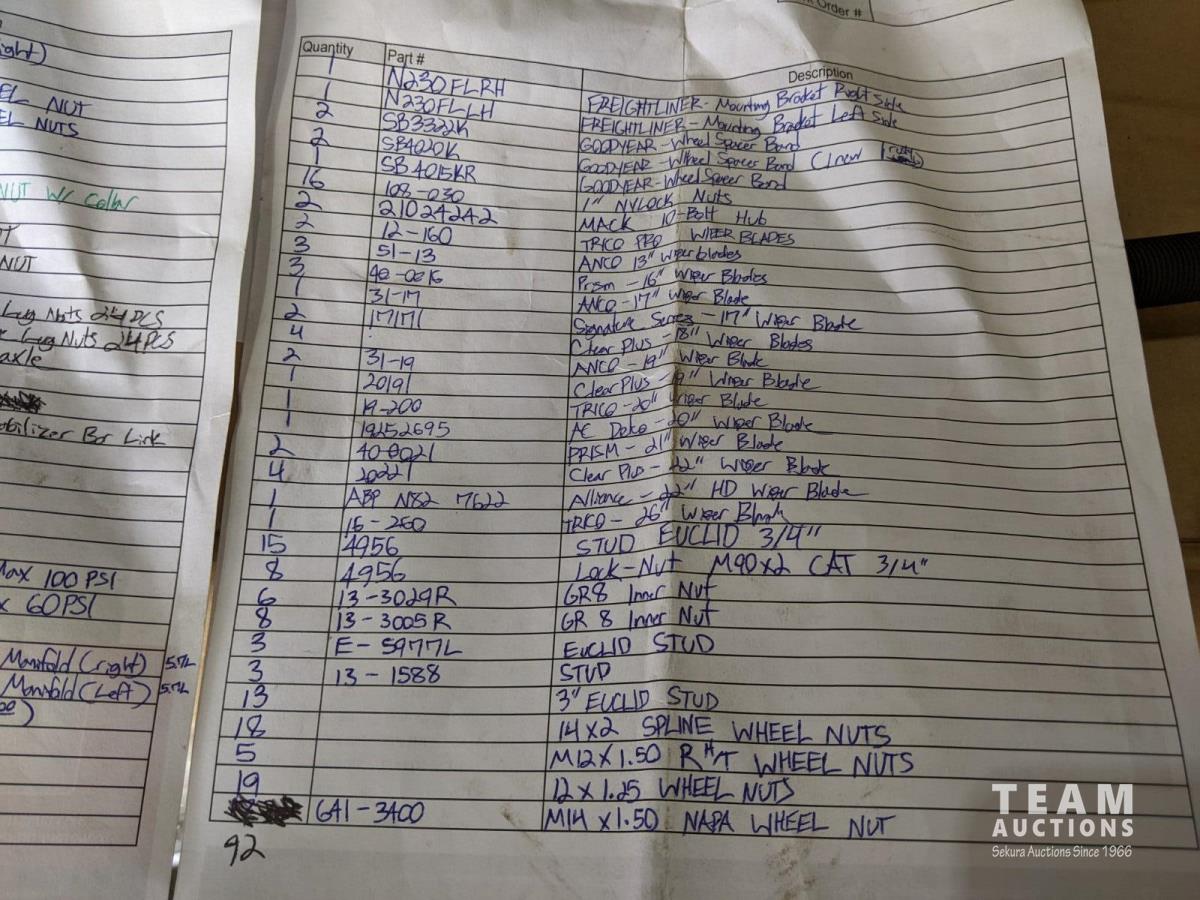 Order #
ight)
EL NUT
EL NUTS
NUT W/ Collar
NUT
Lug Nuts 24 PCS
Lug Nuts 24 PCS
axle
Bar Link
Max 100 PSI
60 PSI
Manifold (right) 5.7L
Manifold (Left) 5.7L
Quantity Part # Description
1 N230FLRH FREIGHTLINER - Mounting Bracket Right Side
1 N230FLLH FREIGHTLINER - Mounting Bracket Left Side
2 SB3322K GOODYEAR - Wheel Spacer Band
2 SB4020K GOODYEAR - Wheel Spacer Band (1 new 1 rusty)
1 SB4015KR GOODYEAR - Wheel Spacer Band
16 108-030 1" NYLOCK Nuts
2 21024242 MACK 10-Bolt Hub
2 12-160 TRICO PRO WIPER BLADES
3 51-13 ANCO 13" wiper blades
3 Prism - 16" Wiper Blades
1 31-17 ANCO - 17" Wiper Blade
2 17171 Signature Series - 17" Wiper Blade
4 Clear Plus - 18" Wiper Blades
2 31-19 ANCO - 19" Wiper Blade
1 20191 Clear Plus - 19" Wiper Blade
1 19-200 TRICO - 20" Wiper Blade
1 19252695 AC Delco - 20" Wiper Blade
2 40-0021 PRISM - 21" Wiper Blade
4 20221 Clear Plus - 22" Wiper Blade
1 ABP N82 7622 Alliance - 22" HD Wiper Blade
1 16-260 TRICO - 26" Wiper Blade
15 4956 STUD EUCLID 3/4"
8 4956 Lock-Nut M90x2 CAT 3/4"
6 13-3029R GR8 Inner Nut
8 13-3005R GR 8 Inner Nut
3 E-5977L EUCLID STUD
3 13-1588 STUD
13 3" EUCLID STUD
18 14x2 SPLINE WHEEL NUTS
5 M12x1.50 R H/T WHEEL NUTS
19 12x1.25 WHEEL NUTS
641-3400 M14x1.50 NAPA WHEEL NUT
92
TEAM
AUCTIONS
Sekura Auctions Since 1966